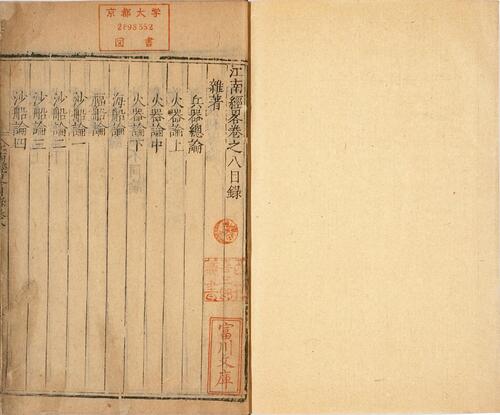 京都大学
2898352
図書
江南經畧卷之八目錄
雜著
兵器總論
火器論上
火器論中
火器論下
海船論
福船論
沙船論一
沙船論二
沙船論三
沙船論四
富川文庫